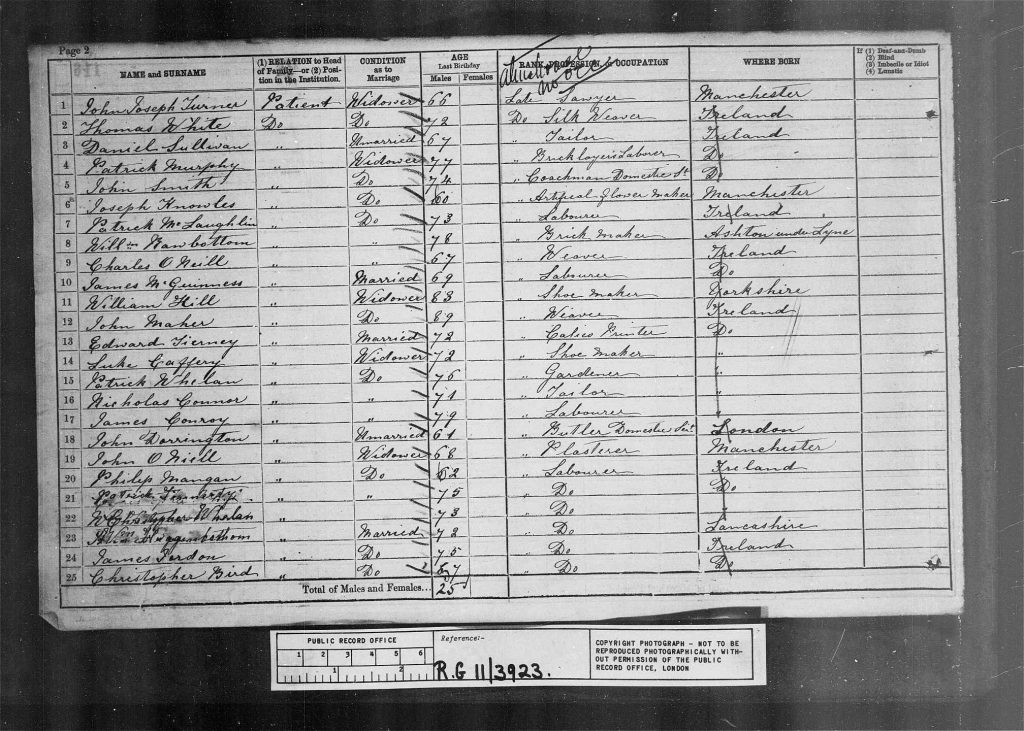 Page 2
NAME and SURNAME
(1) RELATION to Head of Family—or (2) Position in the Institution.
CONDITION as to Marriage
AGE Last Birthday
Males Females
RANK, PROFESSION, or OCCUPATION
WHERE BORN
If (1) Deaf-and-Dumb (2) Blind (3) Imbecile or Idiot (4) Lunatic
1 John Joseph Turner Patient Widower 66 Late Sawyer Manchester
2 Thomas White Do Do 72 Do Silk Weaver Ireland
3 Daniel Sullivan " Unmarried 67 " Tailor Ireland
4 Patrick Murphy " Widower 77 " Bricklayers Laborer Do
5 John Smith " Do 74 " Coachman Domestic St Do
6 Joseph Knowles " Do 60 " Artifical flower Maker Manchester
7 Patrick McLaughlin " Do 73 " Labourer Ireland
8 Willm Rawbottom " " 78 " Brick Maker Ashton under Lyne
9 Charles O Neill " " 67 " Weaver Ireland
10 James McGuinness " Married 69 " Labourer Do
11 William Hill " Widower 83 " Shoe Maker Yorkshire
12 John Maher " Do 89 " Weaver Ireland
13 Edward Tierney " Married 72 " Calico Printer Do
14 Luke Gaffery " Widower 72 " Shoe Maker "
15 Patrick Whelan " Do 76 " Gardener "
16 Nicholas Connor " " 71 " Tailor "
17 James Conroy " " 79 " Labourer "
18 John Dorrington " Unmarried 61 " Butler Domestic Sert London
19 John O Niell " Widower 68 " Plasterer Manchester
20 Philip Mangan " Do 62 " Labourer Ireland
21 Patrick " " 75 " Do Do
22 Christopher Whelan " 73 " Do "
23 " Married 72 " Do Lancashire
24 James " Do 75 " Do Ireland
25 Christopher Bird " Do 67 " Do Do
Total of Males and Females... 25
PUBLIC RECORD OFFICE
1 2 3 4 5 6
1 2
Reference:-
R.G 11/3923.
COPYRIGHT PHOTOGRAPH - NOT TO BE
REPRODUCED PHOTOGRAPHICALLY WITH-
OUT PERMISSION OF THE PUBLIC
RECORD OFFICE, LONDON